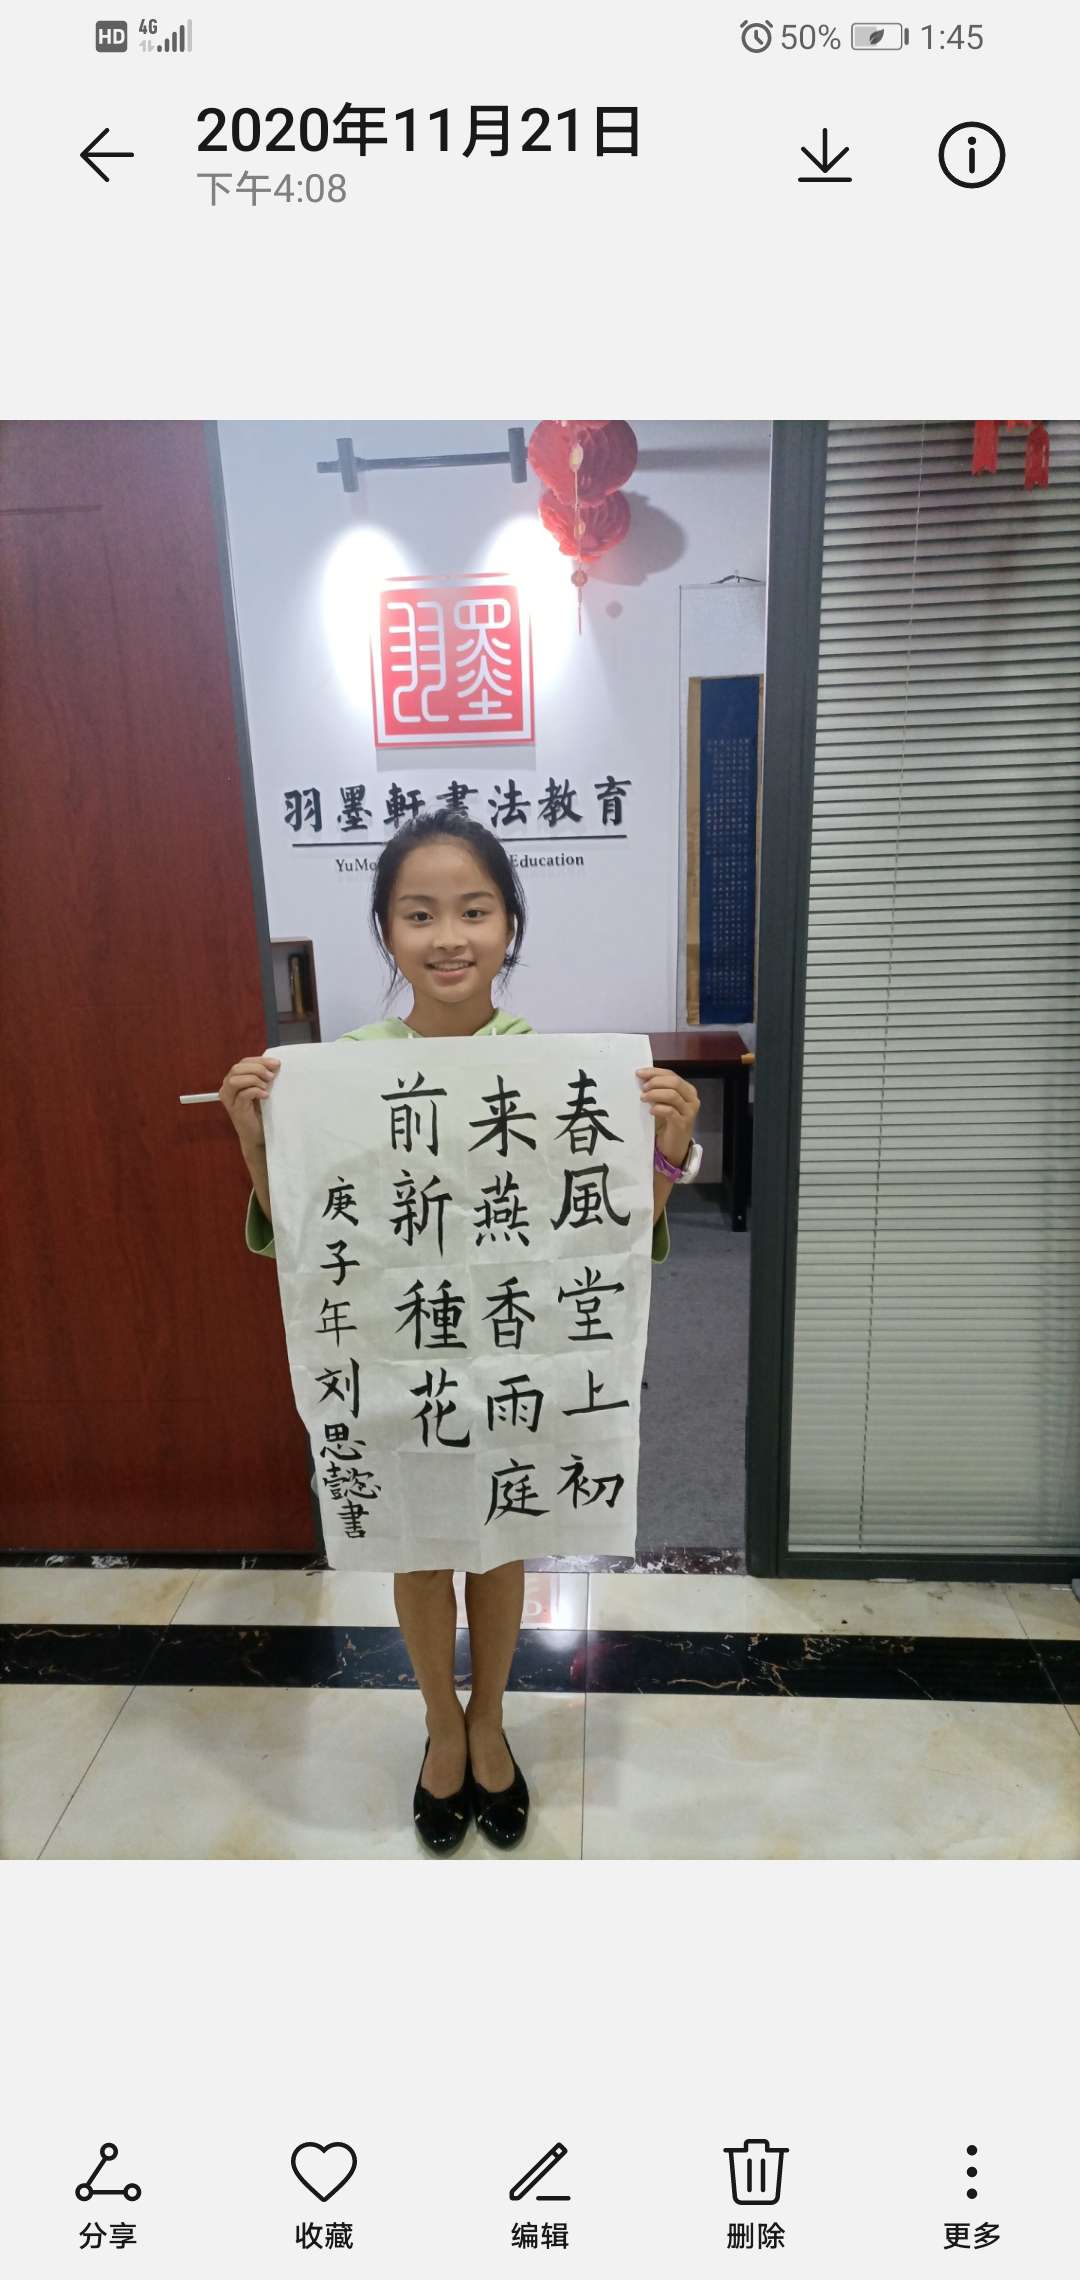 HD 4G 50% 1:45
2020年11月21日
下午4:08
羽墨
羽墨軒書法教育
YuMo Education
春風堂上初
来燕香雨庭
前新種花
庚子年刘思懿書
分享 收藏 编辑 删除 更多